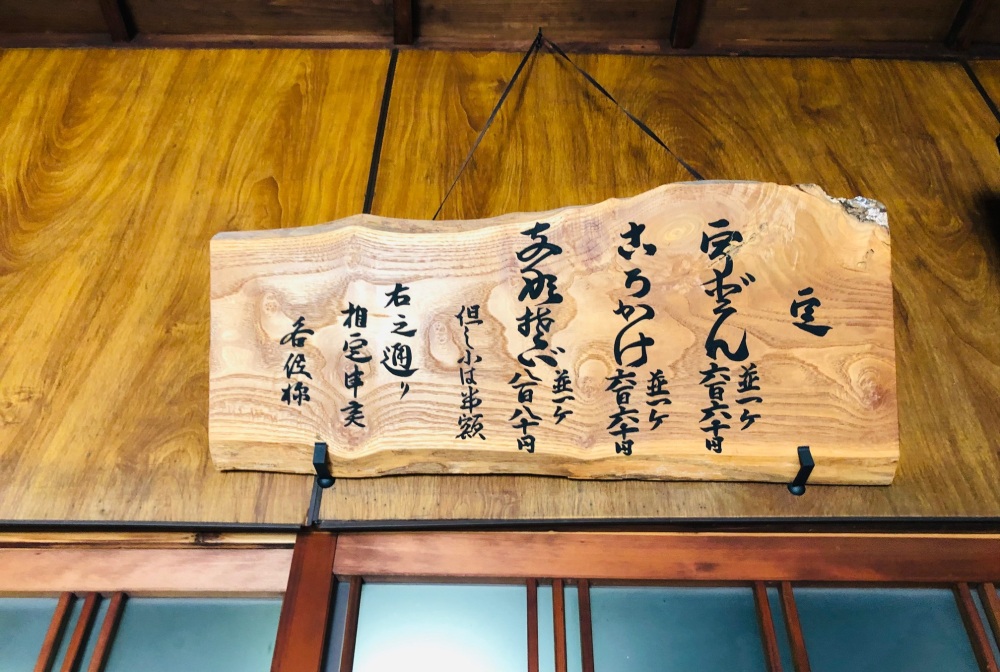 定
うどん
並一ケ
六百六十円
ころかけ
並一ケ
六百六十円
支那そば
並一ケ
八百八十円
但し小は半額
右之通り
相定申
各位様